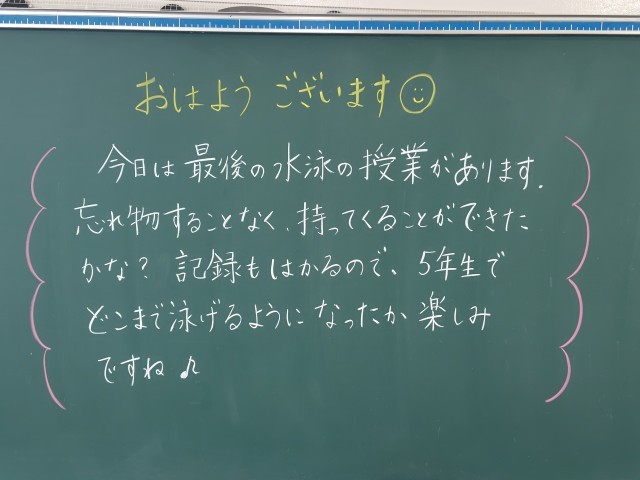 おはよう ございます
今日は最後の水泳の授業があります.
忘れ物することなく、持ってくることができた
かな? 記録もはかるので、5年生で
どこまで泳げるようになったか楽しみ
ですね♪